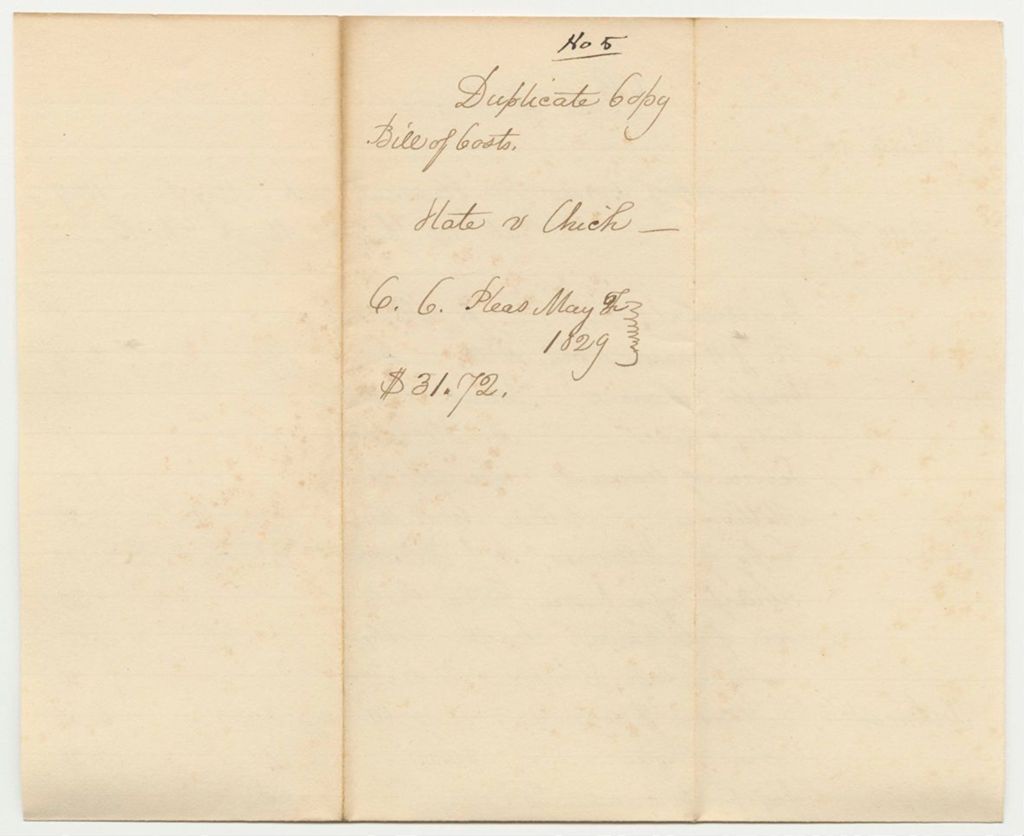 No 5
Duplicate Copy
Bill of Costs.
State v Chick —
C. C. Pleas May T
1829
$31.72.